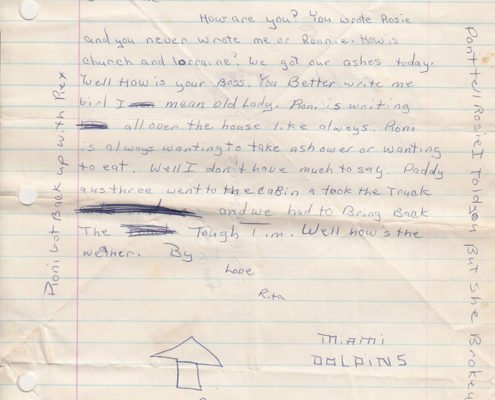 How are you? You wrote Rosie
and you never wrote me or Ronnie. How is
church and lorraine? We got our ashes today.
Well How is your Boss. You Better write me
girl I mean old Lady. Roni is writing
all over the house like always. Roni
is always wanting to take ashower or wanting
to eat. Well I don't have much to say. Daddy
a us three went to the caBin a took the Truck
and we had to Bring Back
The Tough Tim. Well how's the
wether. By
Love
Rita
MiAMi
DOLPINS
Roni Got Back up with Rex
Don't tell Rosie I Told you But She Brokey